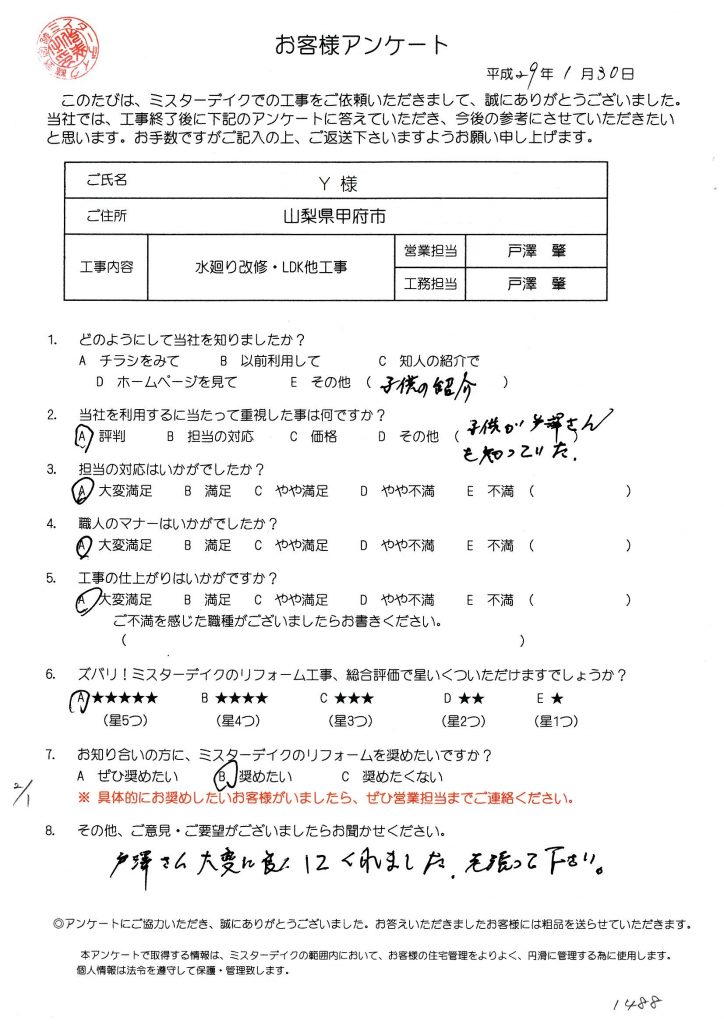 お客様アンケート
平成29年1月30日
このたびは、ミスターデイクでの工事をご依頼いただきまして、誠にありがとうございました。
当社では、工事終了後に下記のアンケートに答えていただき、今後の参考にさせていただきたい
と思います。お手数ですがご記入の上、ご返送下さいますようお願い申し上げます。
ご氏名 Y 様
ご住所 山梨県甲府市
工事内容 水廻り改修・LDK他工事
営業担当 戸澤 肇
工務担当 戸澤 肇
1. どのようにして当社を知りましたか？
A チラシをみて B 以前利用して C 知人の紹介で
D ホームページを見て E その他 ( 子供の紹介 )
2. 当社を利用するに当たって重視した事は何ですか？
A 評判 B 担当の対応 C 価格 D その他 ( 子供が戸澤さん
も知っていた. )
3. 担当の対応はいかがでしたか？
A 大変満足 B 満足 C やや満足 D やや不満 E 不満 ( )
4. 職人のマナーはいかがでしたか？
A 大変満足 B 満足 C やや満足 D やや不満 E 不満 ( )
5. 工事の仕上がりはいかがですか？
A 大変満足 B 満足 C やや満足 D やや不満 E 不満 ( )
ご不満を感じた職種がございましたらお書きください。
( )
6. ズバリ！ミスターデイクのリフォーム工事、総合評価で星いくついただけますでしょうか？
A ★★★★★ B ★★★★ C ★★★ D ★★ E ★
(星5つ) (星4つ) (星3つ) (星2つ) (星1つ)
7. お知り合いの方に、ミスターデイクのリフォームを奨めたいですか？
A ぜひ奨めたい B 奨めたい C 奨めたくない
2/1
※ 具体的にお奨めしたいお客様がいましたら、ぜひ営業担当までご連絡ください。
8. その他、ご意見・ご要望がございましたらお聞かせください。
戸澤さん大変に良くくれました. 下さい。
◎アンケートにご協力いただき、誠にありがとうございました。お答えいただきましたお客様には粗品を送らせていただきます。
本アンケートで取得する情報は、ミスターデイクの範囲内において、お客様の住宅管理をよりよく、円滑に管理する為に使用します。
個人情報は法令を遵守して保護・管理致します。
1488